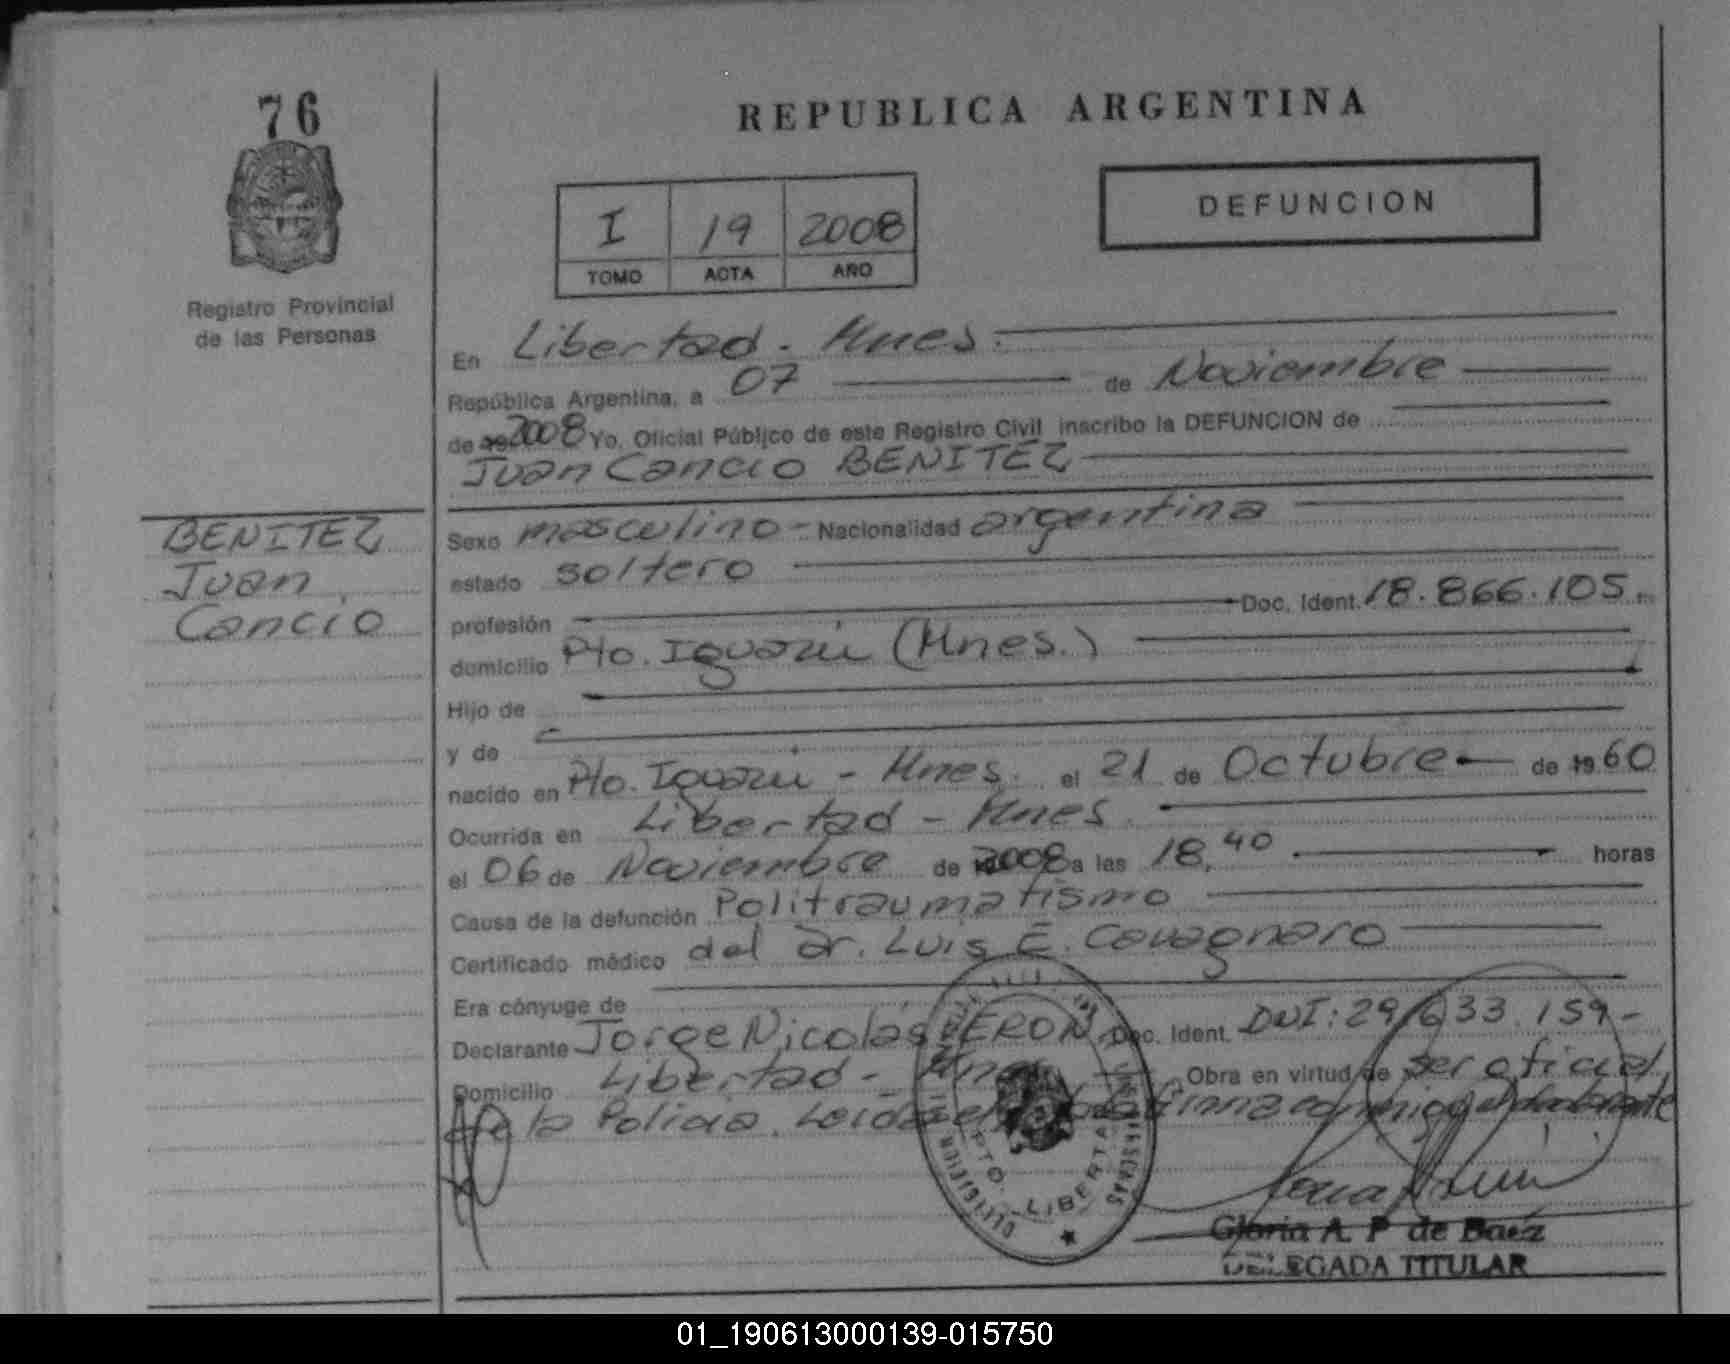 76
REPUBLICA ARGENTINA
DEFUNCION
I 19 2008
TOMO ACTA AÑO
Registro Provincial
de las Personas
En Libertad - Mnes.
República Argentina, a 07 de Noviembre
de 19 2008 Yo, Oficial Público de este Registro Civil inscribo la DEFUNCION de
Juan Cancio BENITEZ
BENITEZ
Juan
Cancio
Sexo masculino - Nacionalidad argentina
estado soltero
profesión Doc. Ident. 18.866.105.
domicilio Pto. Iguazú (Mnes.)
Hijo de
y de
nacido en Pto. Iguazú - Mnes. el 21 de Octubre de 19 60
Ocurrida en Libertad - Mnes.
el 06 de Noviembre de 2008 a las 18,40 horas
Causa de la defunción Politraumatismo
Certificado médico del Dr. Luis E. Cavagnaro
Era cónyuge de
Declarante Jorge Nicolás Doc. Ident. DNI: 29.633.159-
Domicilio Libertad - Mnes Obra en virtud de ser oficial
de la Policia. Leida el firma conmigo el declarante
PTO. LIBERTAD
Gloria A. P de Baez
DELEGADA TITULAR
01_190613000139-015750